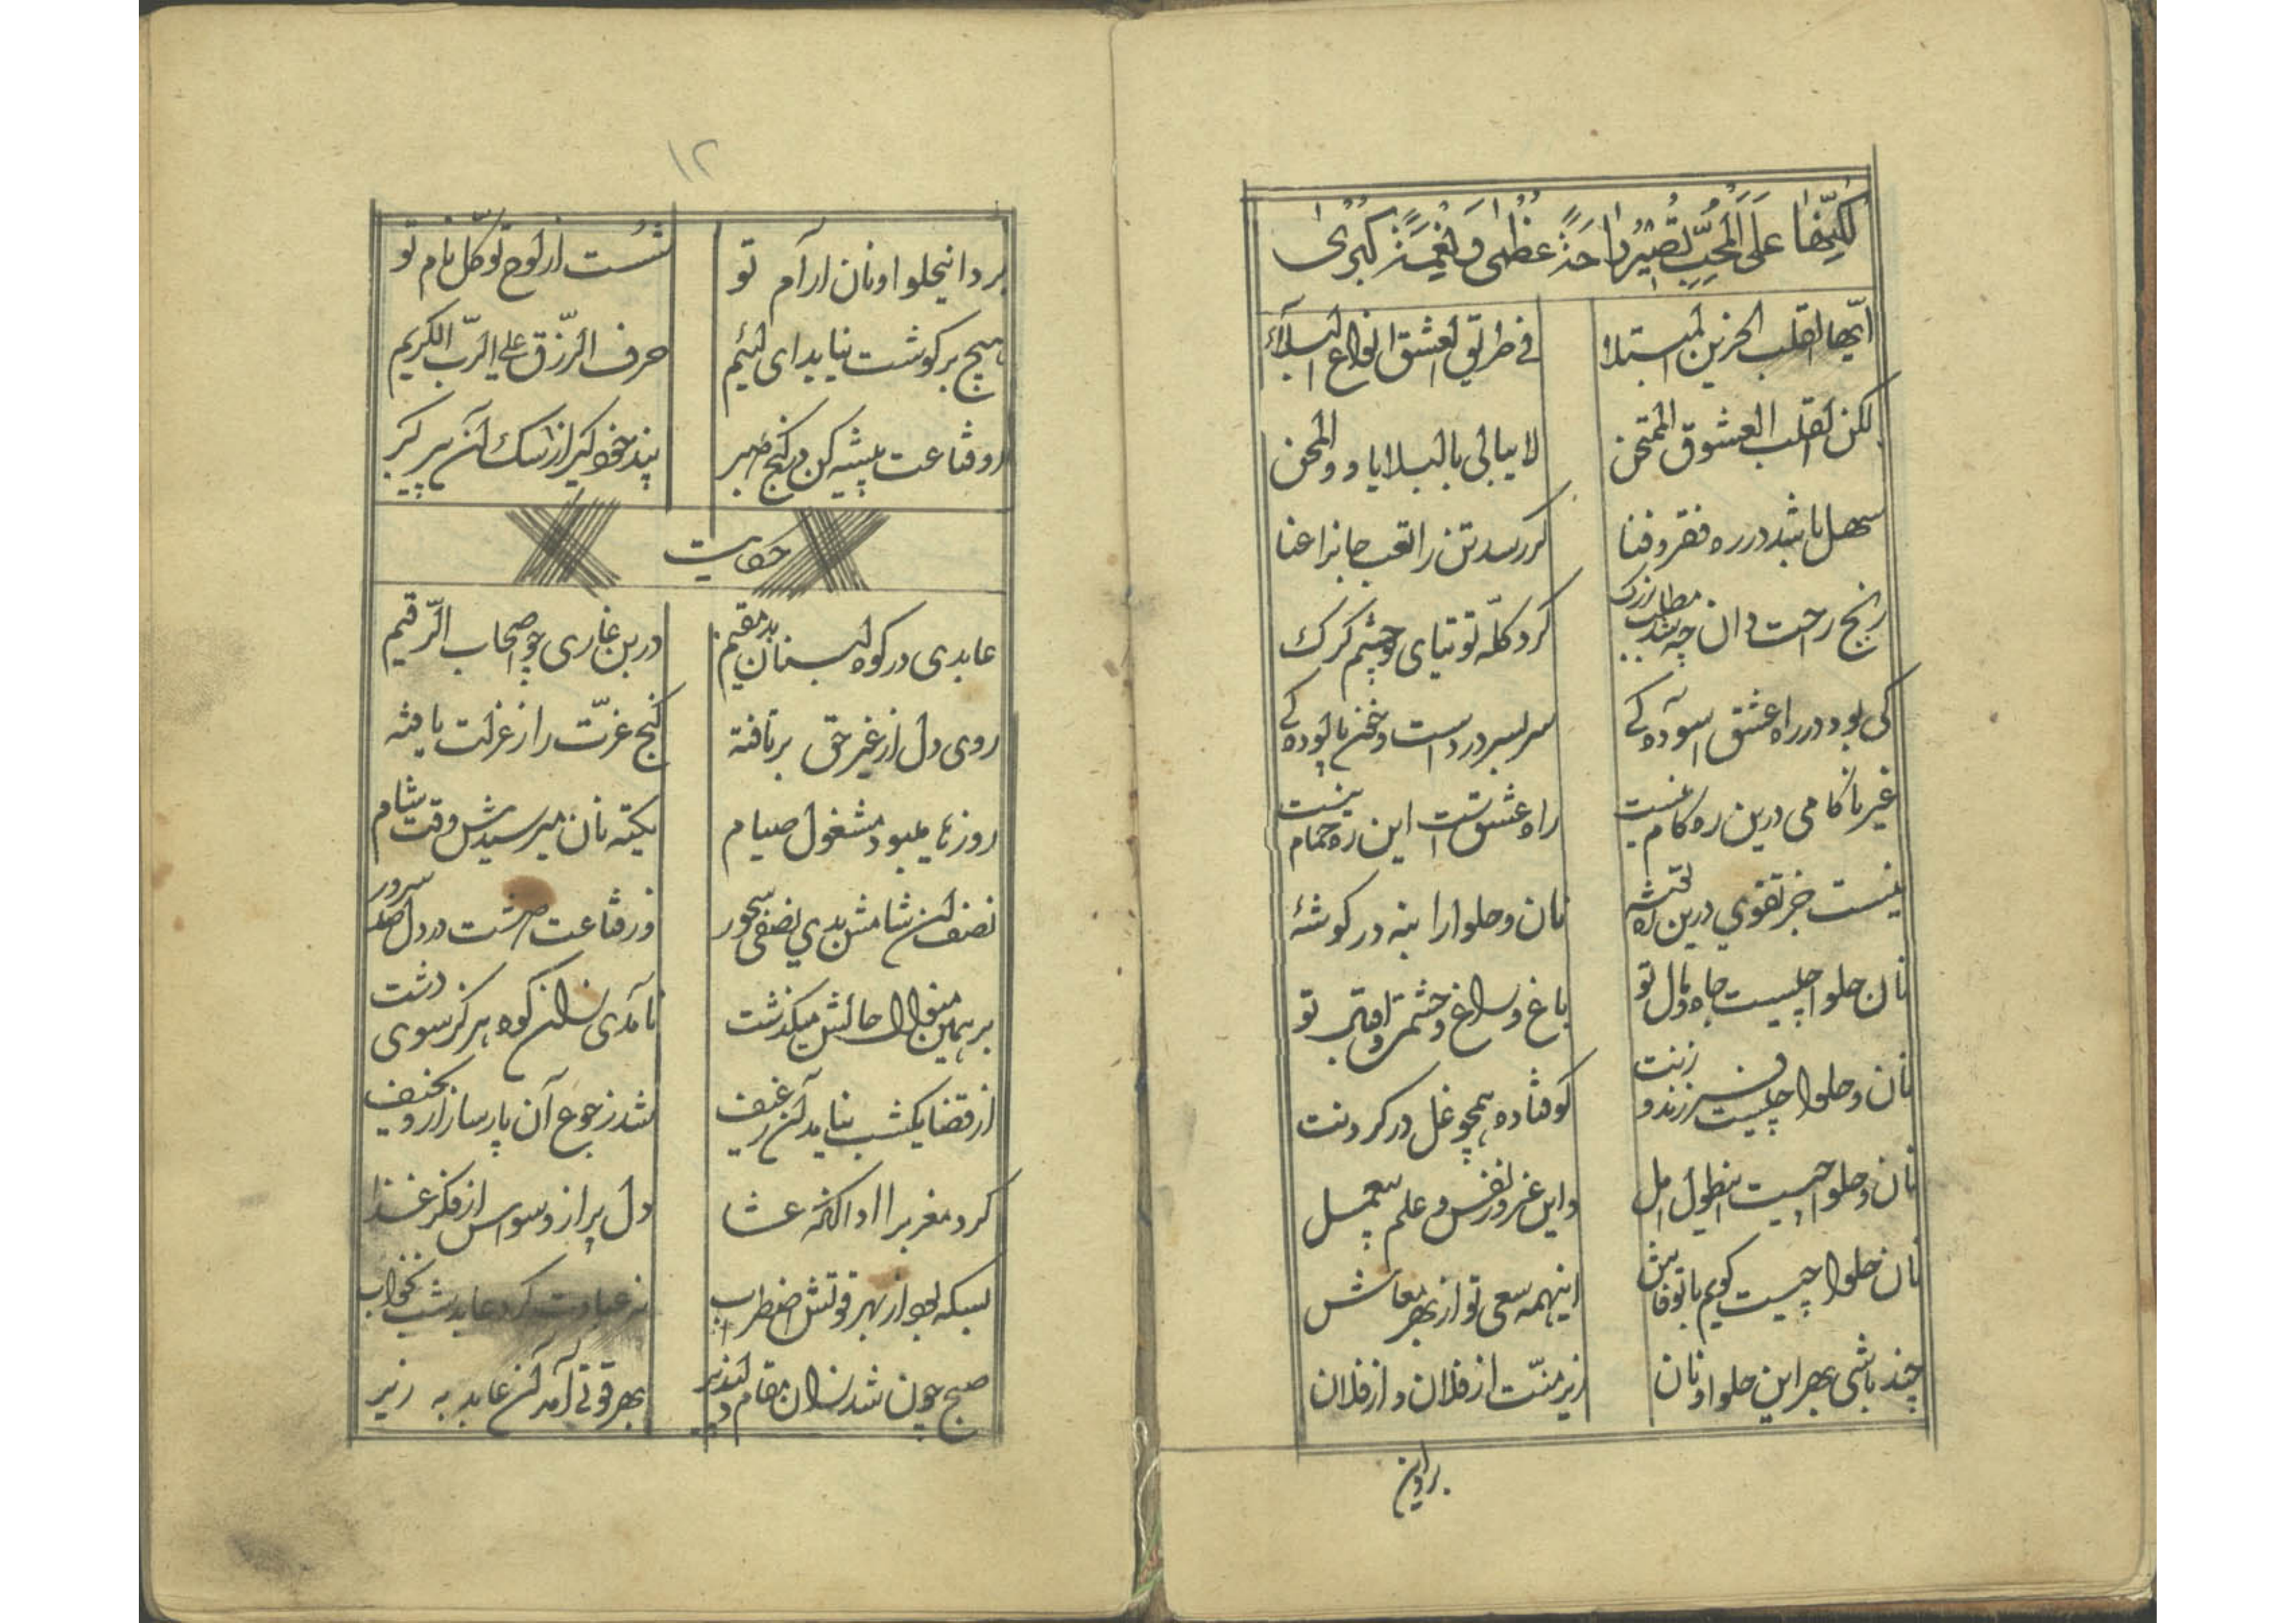 لکنها علی المحب تصیر راحة عظمی و نعمة کبری
ایها القلب الحزین المبتلا فی طریق العشق انواع البلاء
لکن القلب العشوق الممتحن لا یبالی بالبلایا و والمحن
سهل باشد در ره فقر و فنا گر رسد تن را تعب جانرا عنا
رنج راحت دان چه شد مطلب بزرگ گرد گله توتیای چشم گرگ
کی بود در راه عشق آسوده کی سر بسر درد است و خون پالوده کی
غیر ناکامی درین ره کام نیست راه عشقست این ره حمام نیست
نیست جز تقوی درین ره توشهٔ نان و حلوا را بنه در گوشهٔ
نان حلوا چیست جاه و مال تو باغ و راغ و حشمت و اقبال تو
نان و حلوا چیست فرزند و زنت کوفتاده همچو غل در گردنت
نان و حلوا چیست این طول امل و این غرور نفس و علم بیعمل
نان حلوا چیست گویم با تو فاش اینهمه سعی تو از بهر معاش
چند باشی بهر این حلوا و نان زیر منت از فلان و از فلان
برد این
۱۲
برد اینحلوا و نان آرام تو شست از لوح توکل نام تو
هیچ بر گوشت نیاید ای لئیم حرف الرزق علی الرب الکریم
رو قناعت پیشه کن در کنج صبر پند خود گیر از سگ آن پیر گبر
حکایت
عابدی در کوه لبنان بد مقیم در بن غاری چو اصحاب الرقیم
روی دل از غیر حق برتافته گنج عزت را ز عزلت یافته
روزها میبود مشغول صیام یکته نان میرسیدش وقت شام
نصف آن شامش بدی نصفی سحور وز قناعت داشت در دل صد سرور
بر همین منوال حالش میگذشت نامدی زان کوه هرگز سوی دشت
از قضا یکشب نیامد آن رغیف شد ز جوع آن پارسا زار و نحیف
کرد مغرب را ادا آنگه عشا دل پر از وسواس از فکر غذا
بسکه بود از بهر قوتش اضطراب نه عبادت کرد عابد شب نخواب
صبح چون شد زان مقام دلپذیر بهر قوتی آمد آن عابد به زیر